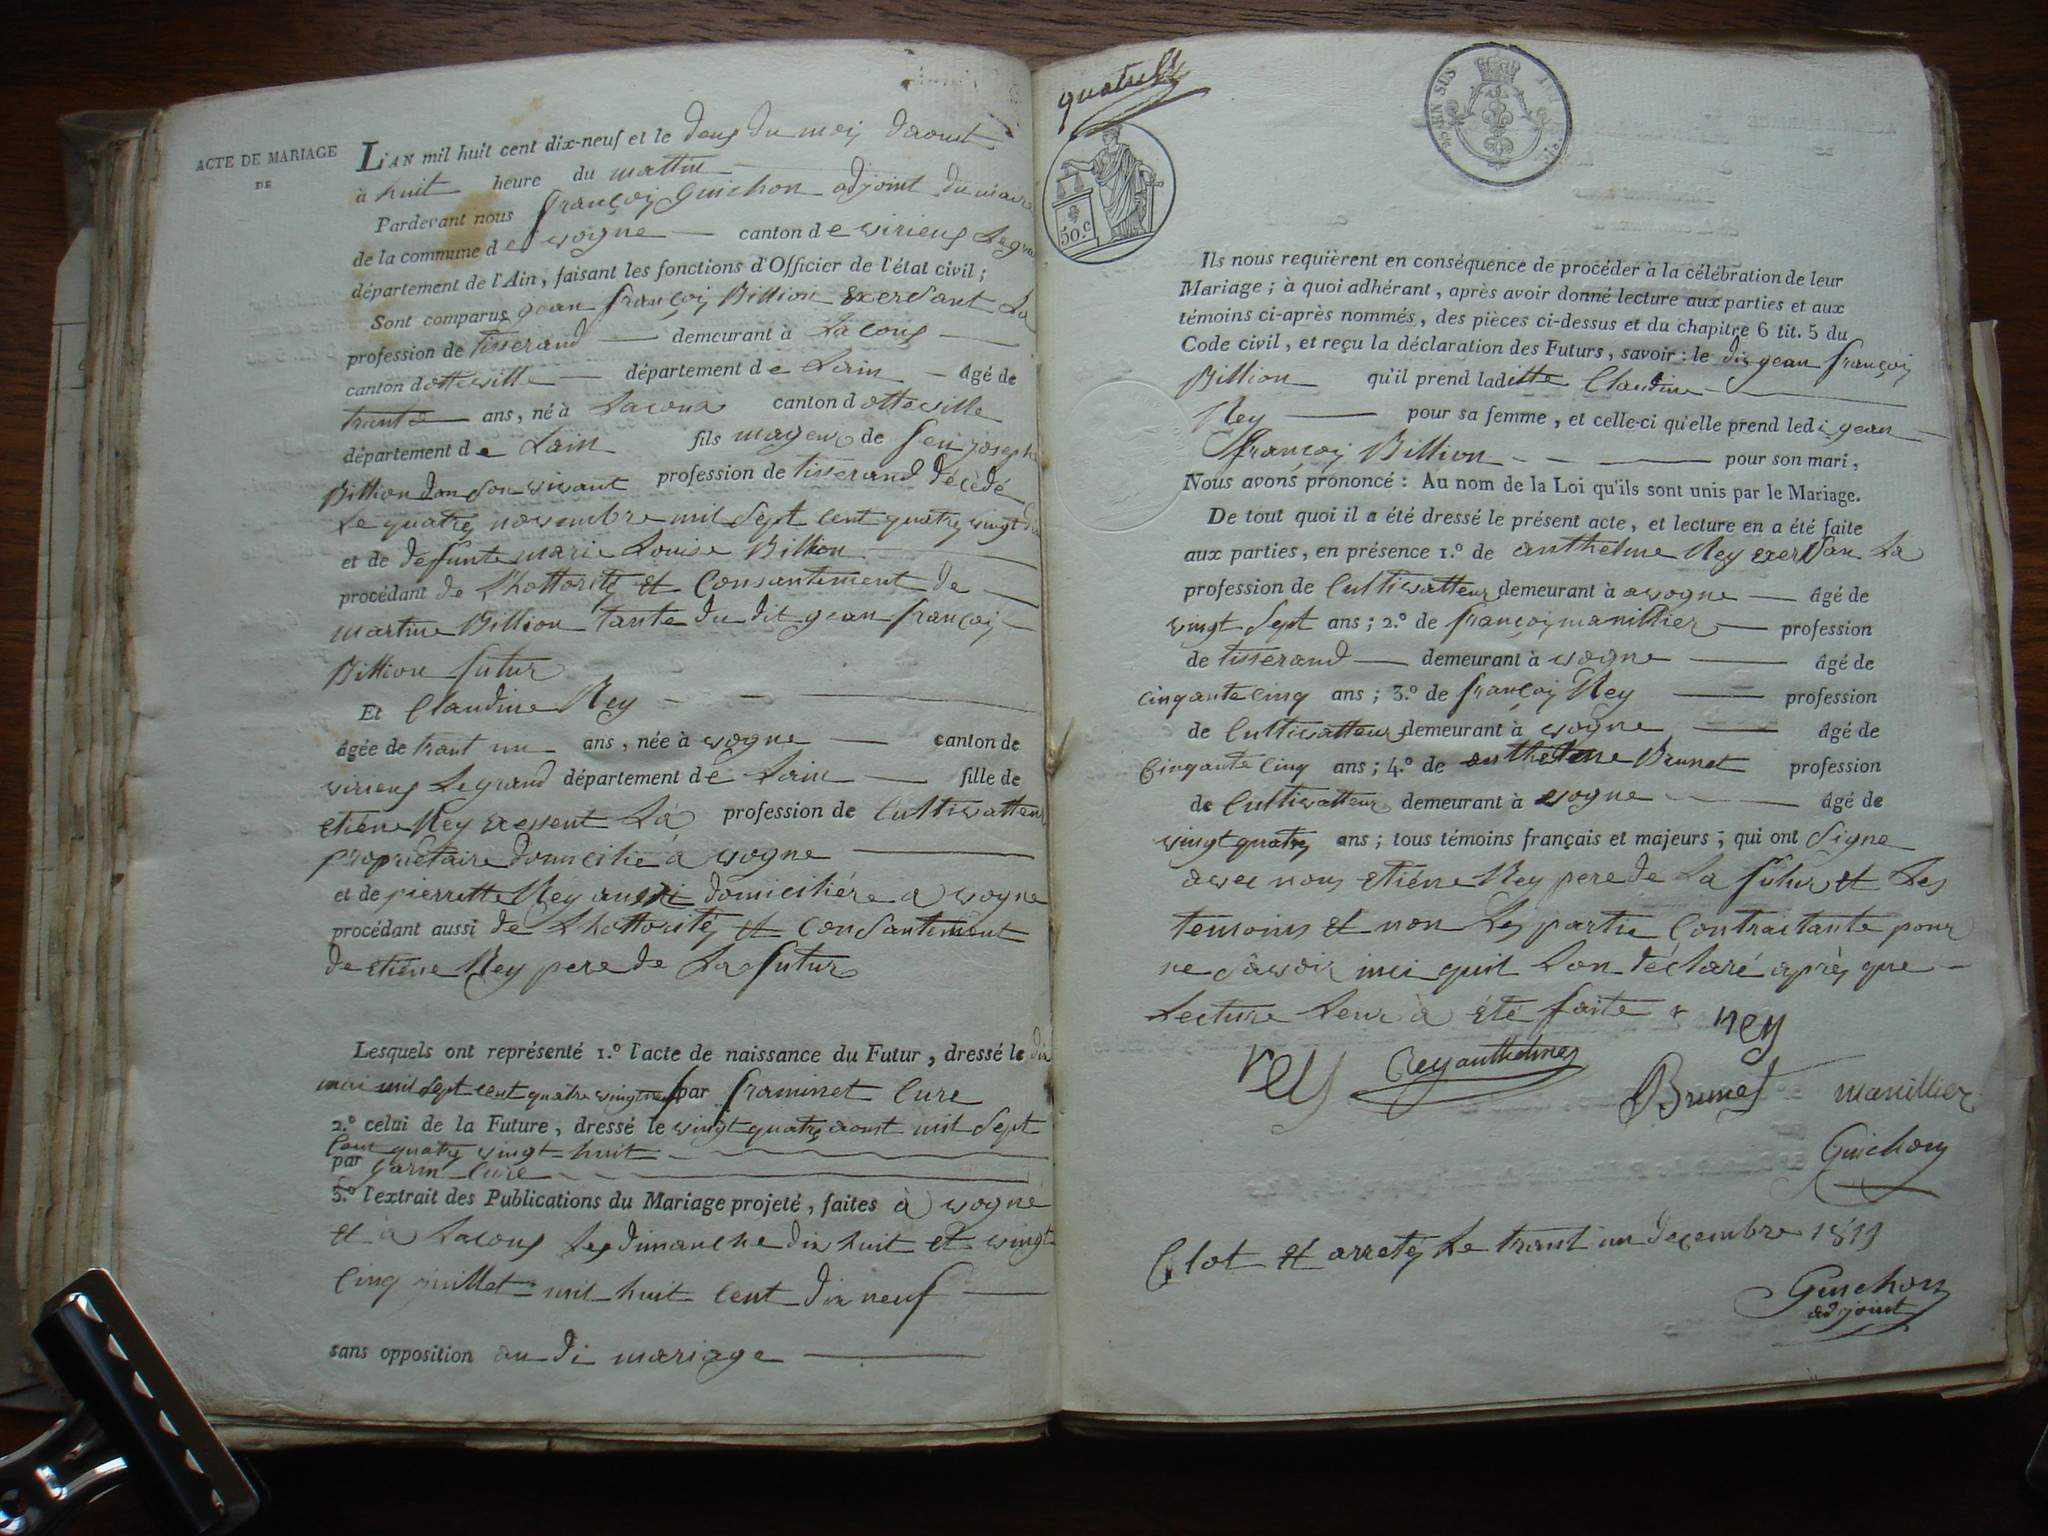 ACTE DE MARIAGE
DE
L'AN mil huit cent dix-neuf et le deux du mois daout
à huit heure du mattin
Pardevant nous françois Guichon adjoint du maire
de la commune de vogne canton de virieux Legrand
département de l'Ain, faisant les fonctions d'Officier de l'état civil;
Sont comparus gean françois Billion exersant La
profession de tisserand demeurant à Lacoux
canton dotteville département de Lain âgé de
trante ans, né à Lacoux canton dotteville
département de Lain fils mageur de feu joseph
Billion dan son vivant profession de tisserand décédé
Le quatre novembre mil sept cent quatre vingt dix
et de defunte marie Louise Billion
procédant de Lhottorité et Consantement de
martine Billion tante du dit gean françois
Billion futur
Et Claudine Rey
âgée de trant un ans, née à vogne canton de
virieux Legrand département de Lain fille de
etiéne Rey exersent La profession de Cultivatteur
propriétaire domicilié à vogne
et de pierrette Rey aussi domiciliére a vogne
procédant aussi de Lhottorité et Consantement
de etiéne Rey pere de La futur
Lesquels ont représenté 1.º l'acte de naissance du Futur, dressé le dix
mai mil sept cent quatre vingt neuf par framinet Cure
2.º celui de la Future, dressé le vingt quatre aoust mil sept
Cent quatre vingt huit
par garin Cure
3.º l'extrait des Publications du Mariage projeté, faites à vogne
et a Lacoux Les dimanche dix huit et vingt
Cinq juillet mil huit Cent dix neuf
sans opposition au di mariage
quatre
50.c
EN SUS
Ils nous requièrent en conséquence de procéder à la célébration de leur
Mariage; à quoi adhérant, après avoir donné lecture aux parties et aux
témoins ci-après nommés, des pièces ci-dessus et du chapitre 6 tit. 5 du
Code civil, et reçu la déclaration des Futurs, savoir: le dit gean françois
Billion qu'il prend laditte Claudine
Rey pour sa femme, et celle-ci qu'elle prend ledi gean
françois Billion pour son mari,
Nous avons prononcé: Au nom de la Loi qu'ils sont unis par le Mariage.
De tout quoi il a été dressé le présent acte, et lecture en a été faite
aux parties, en présence 1.º de anthelme Rey exersan La
profession de Cultivatteur demeurant à avogne âgé de
vingt sept ans; 2.º de françois manillier profession
de tisserand demeurant à vogne âgé de
Cinqante Cinq ans; 3.º de françois Rey profession
de Cultivatteur demeurant à vogne âgé de
Cinqante Cinq ans; 4.º de anthelme Brunet profession
de Cultivatteur demeurant à vogne âgé de
vingt quatre ans; tous témoins français et majeurs; qui ont Signe
avec nous etiéne Rey pere de La futur et Les
temoins et non Les partie Contractante pour
ne Savoir insi quil Lon déclaré après que
Lecture Leur à été faite
rey
rey
Rey anthelme
Brunet
manillier
Guichon
Clot et arreté Le trant un decembre 1819
Guichon
adjoint